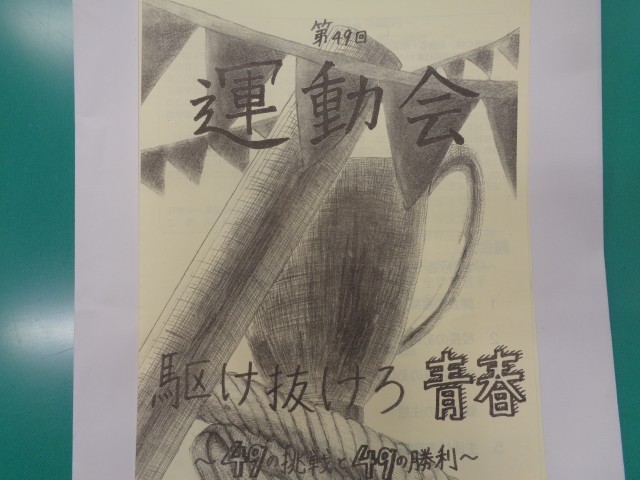 第49回
運動会
駆け抜けろ 青春
～49の挑戦と49の勝利～